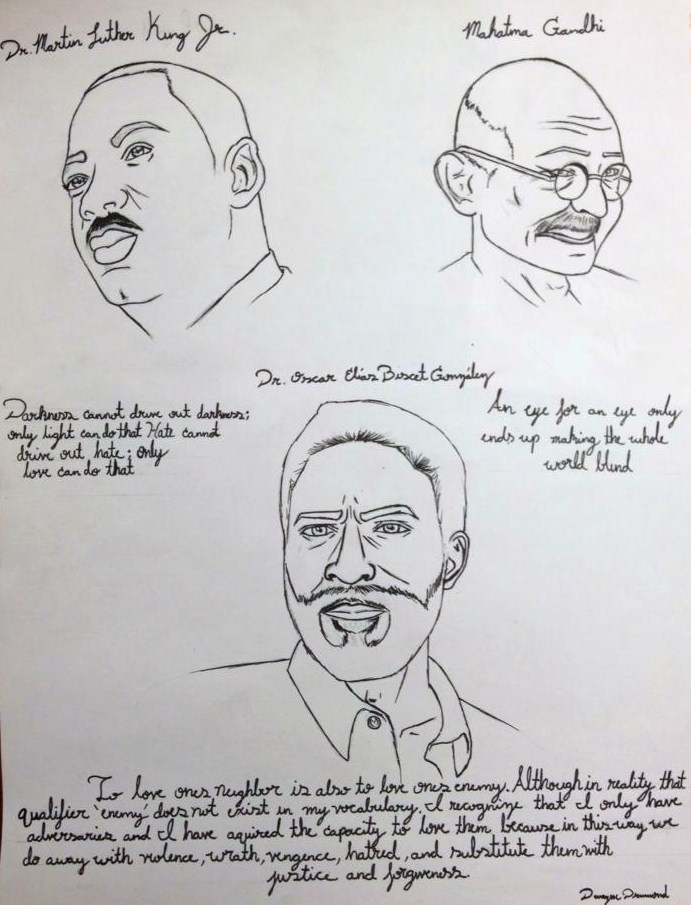 Dr. Martin Luther King Jr.
Mahatma Gandhi
Dr. Oscar Elias Biscet Gonzáley
Darkness cannot drive out darkness;
only light can do that Hate cannot
drive out hate; only
love can do that
An eye for an eye only
ends up making the whole
world blind
To love ones neighbor is also to love ones enemy. Although in reality that
qualifier 'enemy' does not exist in my vocabulary. I recognize that I only have
adversaries and I have aquired the capacity to love them because in this way we
do away with violence, wrath, vengence, hatred, and substitute them with
justice and forgiveness.
Drummond